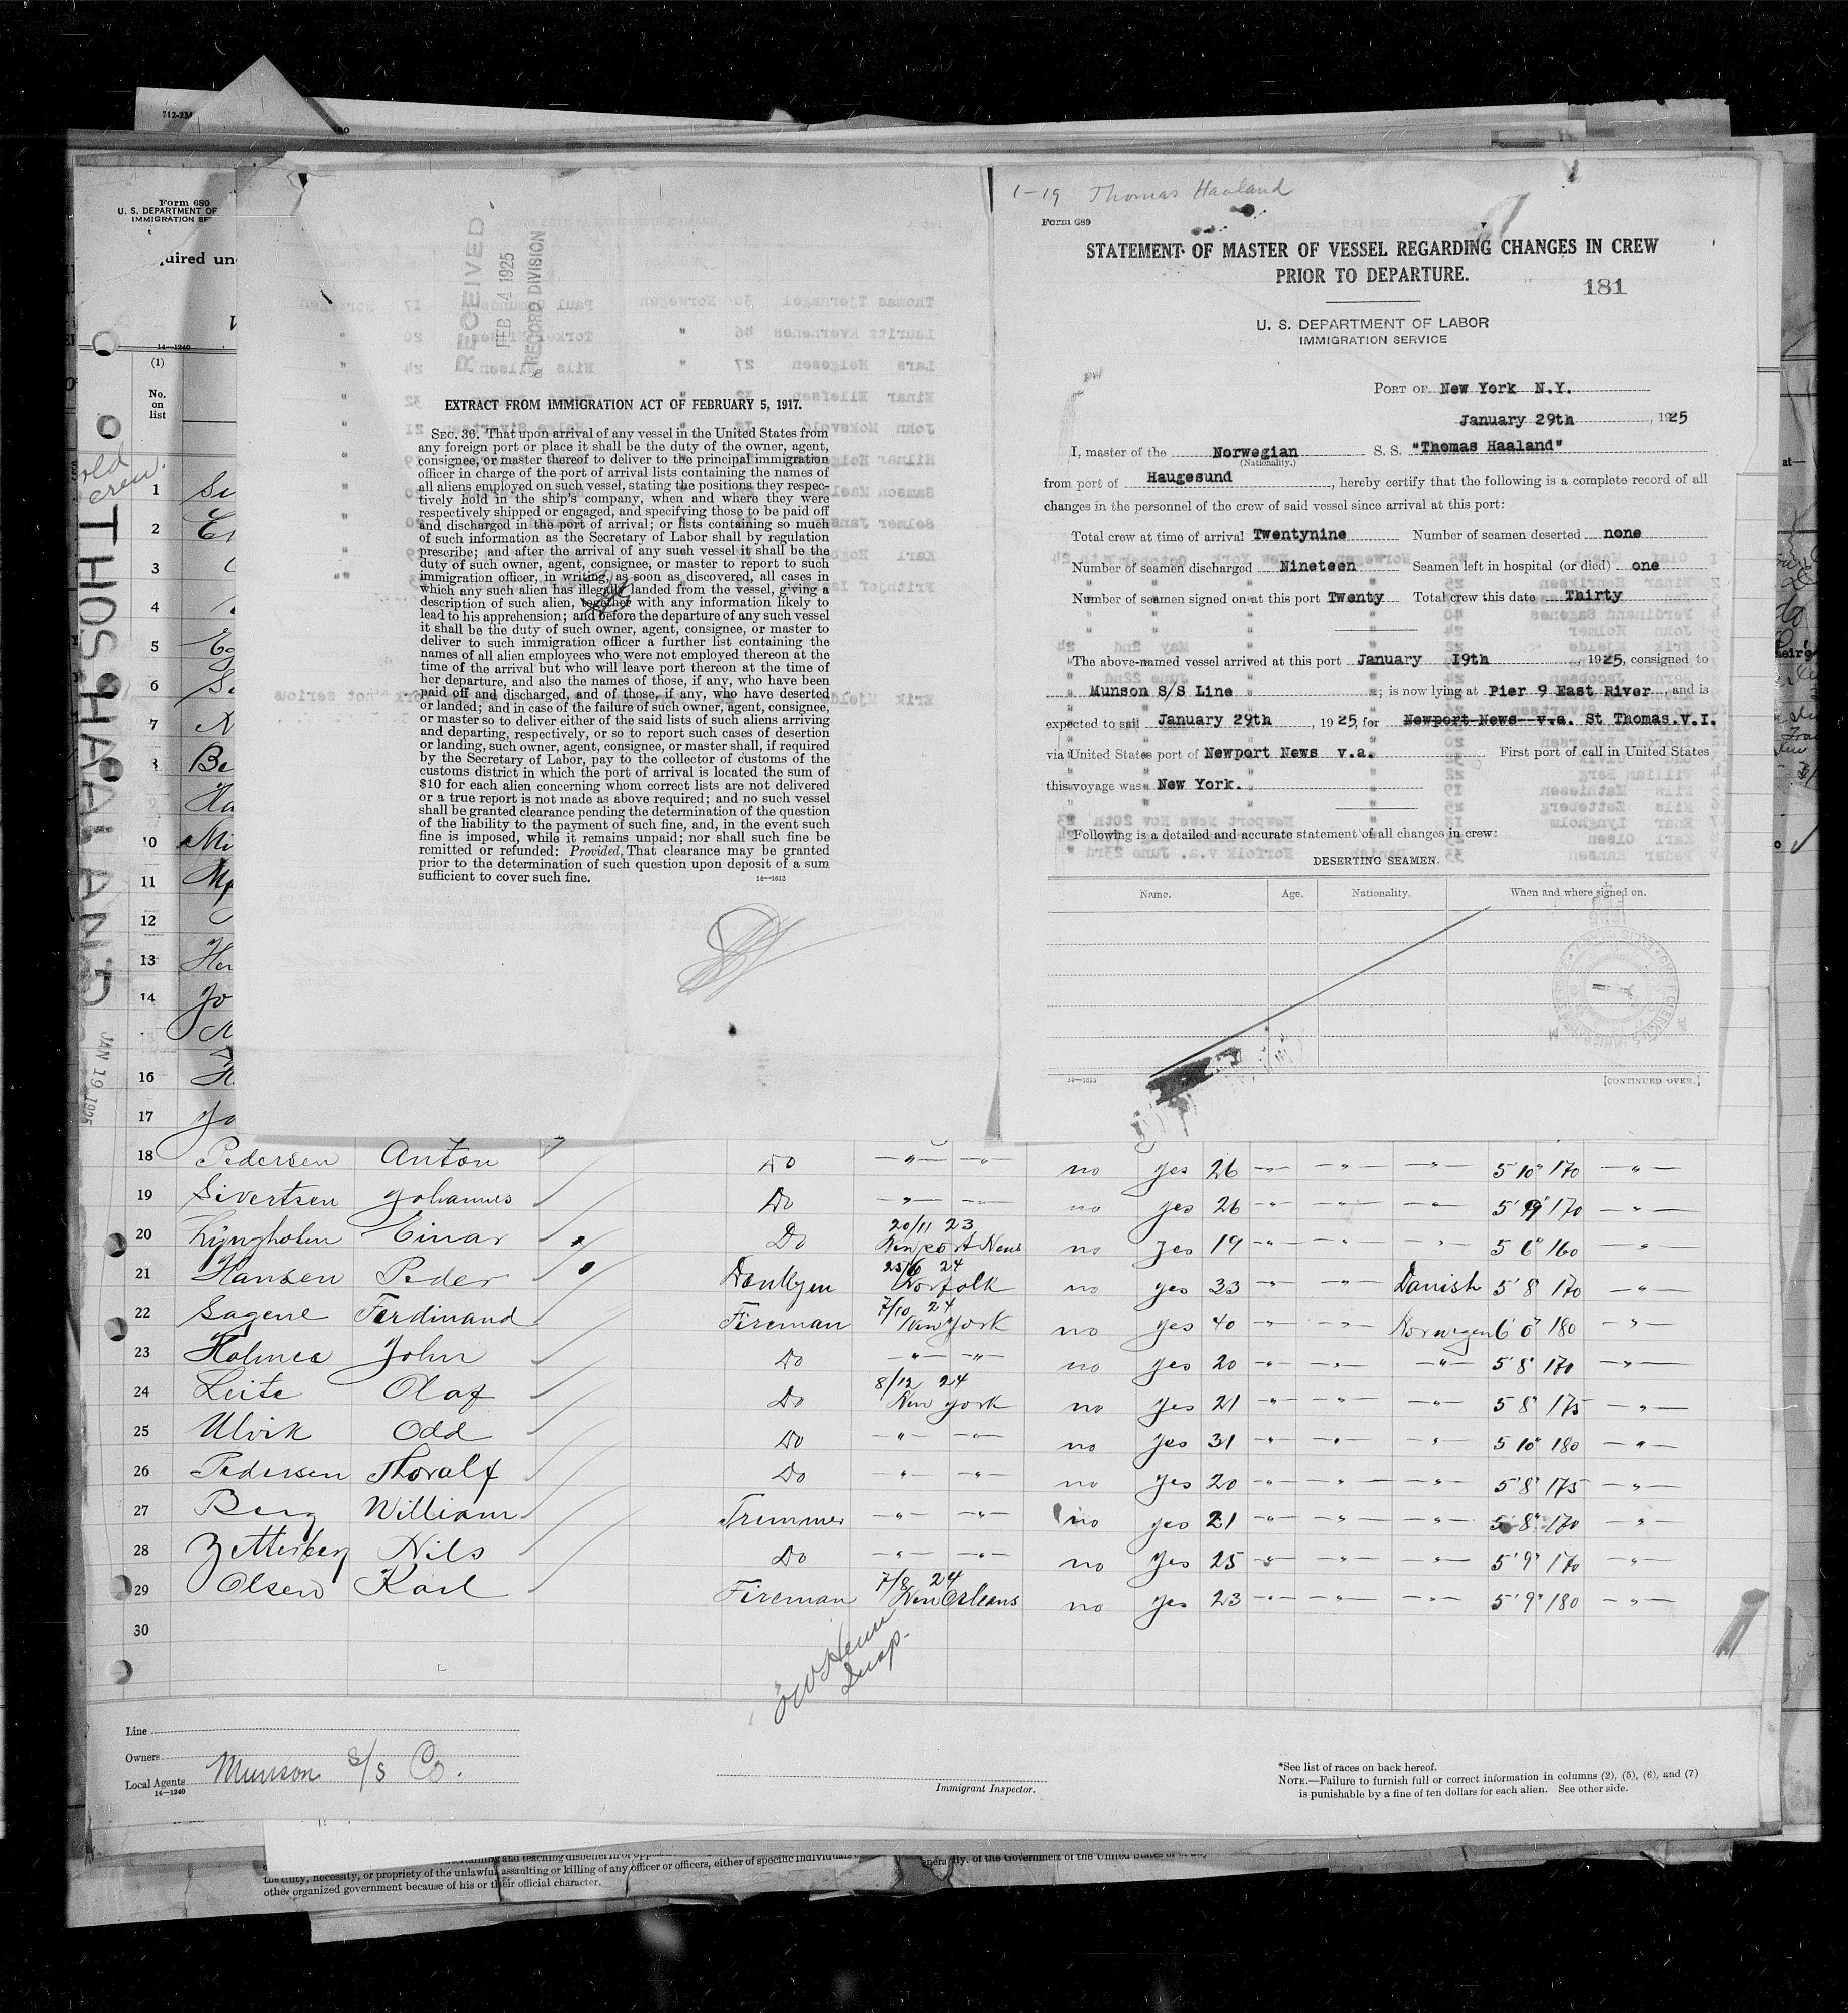 712-2M
Form 680
U. S. DEPARTMENT OF
IMMIGRATION SE
uired un
14—1240
(1)
No.
on
list
old
crew.
THOS. HAALAND
JAN 19 1925
RECEIVED
FEB 4 1925
RECORD DIVISION
EXTRACT FROM IMMIGRATION ACT OF FEBRUARY 5, 1917.
SEC. 36. That upon arrival of any vessel in the United States from
any foreign port or place it shall be the duty of the owner, agent,
consignee, or master thereof to deliver to the principal immigration
officer in charge of the port of arrival lists containing the names of
all aliens employed on such vessel, stating the positions they respec-
tively hold in the ship's company, when and where they were
respectively shipped or engaged, and specifying those to be paid off
and discharged in the port of arrival; or lists containing so much
of such information as the Secretary of Labor shall by regulation
prescribe; and after the arrival of any such vessel it shall be the
duty of such owner, agent, consignee, or master to report to such
immigration officer, in writing, as soon as discovered, all cases in
which any such alien has illegally landed from the vessel, giving a
description of such alien, together with any information likely to
lead to his apprehension; and before the departure of any such vessel
it shall be the duty of such owner, agent, consignee, or master to
deliver to such immigration officer a further list containing the
names of all alien employees who were not employed thereon at the
time of the arrival but who will leave port thereon at the time of
her departure, and also the names of those, if any, who have been
paid off and discharged, and of those, if any, who have deserted
or landed; and in case of the failure of such owner, agent, consignee,
or master so to deliver either of the said lists of such aliens arriving
and departing, respectively, or so to report such cases of desertion
or landing, such owner, agent, consignee, or master shall, if required
by the Secretary of Labor, pay to the collector of customs of the
customs district in which the port of arrival is located the sum of
$10 for each alien concerning whom correct lists are not delivered
or a true report is not made as above required; and no such vessel
shall be granted clearance pending the determination of the question
of the liability to the payment of such fine, and, in the event such
fine is imposed, while it remains unpaid; nor shall such fine be
remitted or refunded: Provided, That clearance may be granted
prior to the determination of such question upon deposit of a sum
sufficient to cover such fine.
14—1613
1-19 Thomas Haaland
Form 689
STATEMENT OF MASTER OF VESSEL REGARDING CHANGES IN CREW
PRIOR TO DEPARTURE.
181
U. S. DEPARTMENT OF LABOR
IMMIGRATION SERVICE
PORT OF New York N.Y.
January 29th, 1925
I, master of the Norwegian S. S. "Thomas Haaland"
(Nationality.)
from port of Haugesund, hereby certify that the following is a complete record of all
changes in the personnel of the crew of said vessel since arrival at this port:
Total crew at time of arrival Twentynine Number of seamen deserted none
Number of seamen discharged Nineteen Seamen left in hospital (or died) one
Number of seamen signed on at this port Twenty Total crew this date Thirty
The above-named vessel arrived at this port January 19th, 1925, consigned to
Munson S/S Line; is now lying at Pier 9 East River, and is
expected to sail January 29th, 1925, for Newport News v.a. St Thomas.V.I.
via United States port of Newport News v.a. First port of call in United States
this voyage was New York.
Following is a detailed and accurate statement of all changes in crew:
DESERTING SEAMEN.
Name. Age. Nationality. When and where signed on.
14—1613
[CONTINUED OVER.]
1
2
3
4
5
6
7
8 Be
10 Mi
11
12
13 Her
14 Jo
16
17 Jo
18 Pedersen Anton Do —"— —"— no yes 26 —"— —"— —"— 5 10" 170 —"—
19 Sivertsen Johannes Do —"— —"— no yes 26 —"— —"— —"— 5' 9" 170 —"—
20/11 23
20 Lyngholm Einar Do Newport News no yes 19 —"— —"— —"— 5 6" 160 —"—
23/6 24
21 Hansen Peder Donkyen Norfolk no yes 33 —"— —"— Danish 5' 8 170 —"—
7/10 24
22 Sagene Ferdinand Fireman New York no yes 40 —"— —"— Norwegen 6' 0" 180 —"—
23 Holmea John Do —"— —"— no yes 20 —"— —"— —"— 5'8' 170 —"—
8/12 24
24 Leite Olaf Do New York no yes 21 —"— —"— —"— 5 8' 175 —"—
25 Ulvik Odd Do —"— —"— no yes 31 —"— —"— —"— 5 10" 180 —"—
26 Pedersen Thoralf Do —"— —"— no yes 20 —"— —"— —"— 5'8" 175 —"—
27 Berg William Tremmer —"— —"— no yes 21 —"— —"— —"— 5'8" 170 —"—
28 Zetterberg Nils Do —"— —"— no yes 25 —"— —"— —"— 5'9" 170 —"—
7/8 24
29 Olsen Karl Fireman New Orleans no yes 23 —"— —"— —"— 5' 9" 180 —"—
30
Insp.
Line
Owners
Local Agents Munson S/S Co.
14—1240
Immigrant Inspector.
*See list of races on back hereof.
NOTE.—Failure to furnish full or correct information in columns (2), (5), (6), and (7)
is punishable by a fine of ten dollars for each alien. See other side.
the duty, necessity, or propriety of the unlawful assaulting or killing of any officer or officers, either of specific individuals
other organized government because of his or their official character.